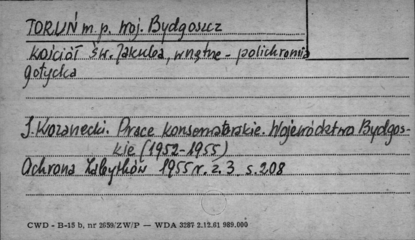 TORUŃ m. p. woj. Bydgoszcz
kościół św. Jakuba, wnętrze - polichromia
gotycka
J. Kozanecki. Prace konserwatorskie. Województwo Bydgos-
kie (1952-1955)
Ochrona Zabytków 1955 r. z. 3 s. 208
CWD - B-15 b, nr 2659/ZW/P — WDA 3287 2.12.61 989.000